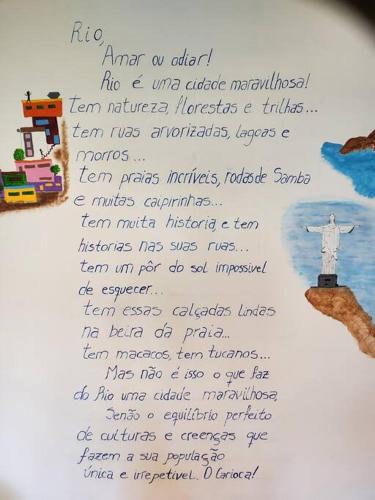 Rio,
Amar ou odiar!
Rio é uma cidade maravilhosa!
tem natureza, florestas e trilhas...
tem ruas arvorizadas, lagoas e
morros...
tem praias incríveis, rodas de Samba
e muitas caipirinhas...
tem muita historia, e tem
historias nas suas ruas...
tem um pôr do sol impossivel
de esquecer...
tem essas calçadas lindas
na beira da praia...
tem macacos, tem tucanos...
Mas não é isso o que faz
do Rio uma cidade maravilhosa,
Senão o equilíbrio perfeito
de culturas e creenças que
fazem a sua população
única e irrepetível. O Carioca!